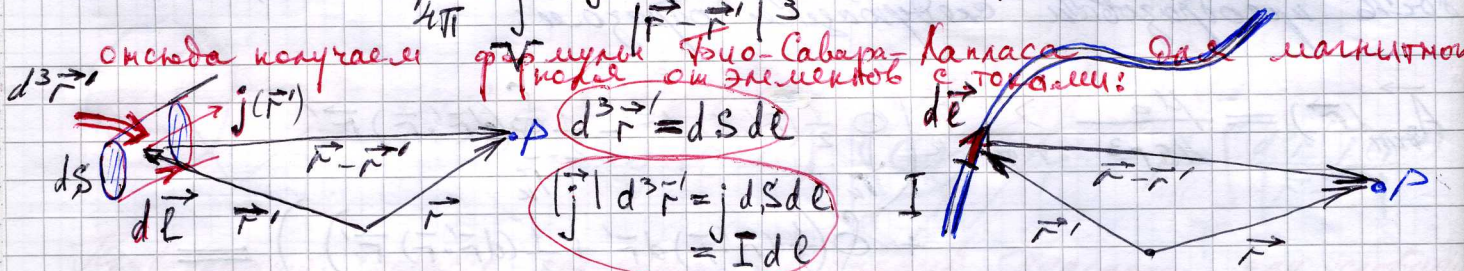 4π |r⃗ - r⃗'|³
отсюда получаем формулы Био-Савара-Лапласа для магнитного
поля от элементов с токами:
d³r⃗' j(r⃗') P d³r⃗' = dS dl dl⃗
dS r⃗ - r⃗' r⃗ - r⃗' P
dl⃗ r⃗' r⃗ |j⃗| d³r⃗' = j dS dl I r⃗' r⃗
= I dl